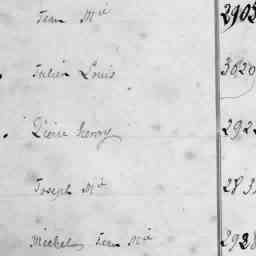 Jean Mie 2905
Julien Louis 3020
Pierre henry 292
Joseph Md 283
Michel Jean Mie 2928